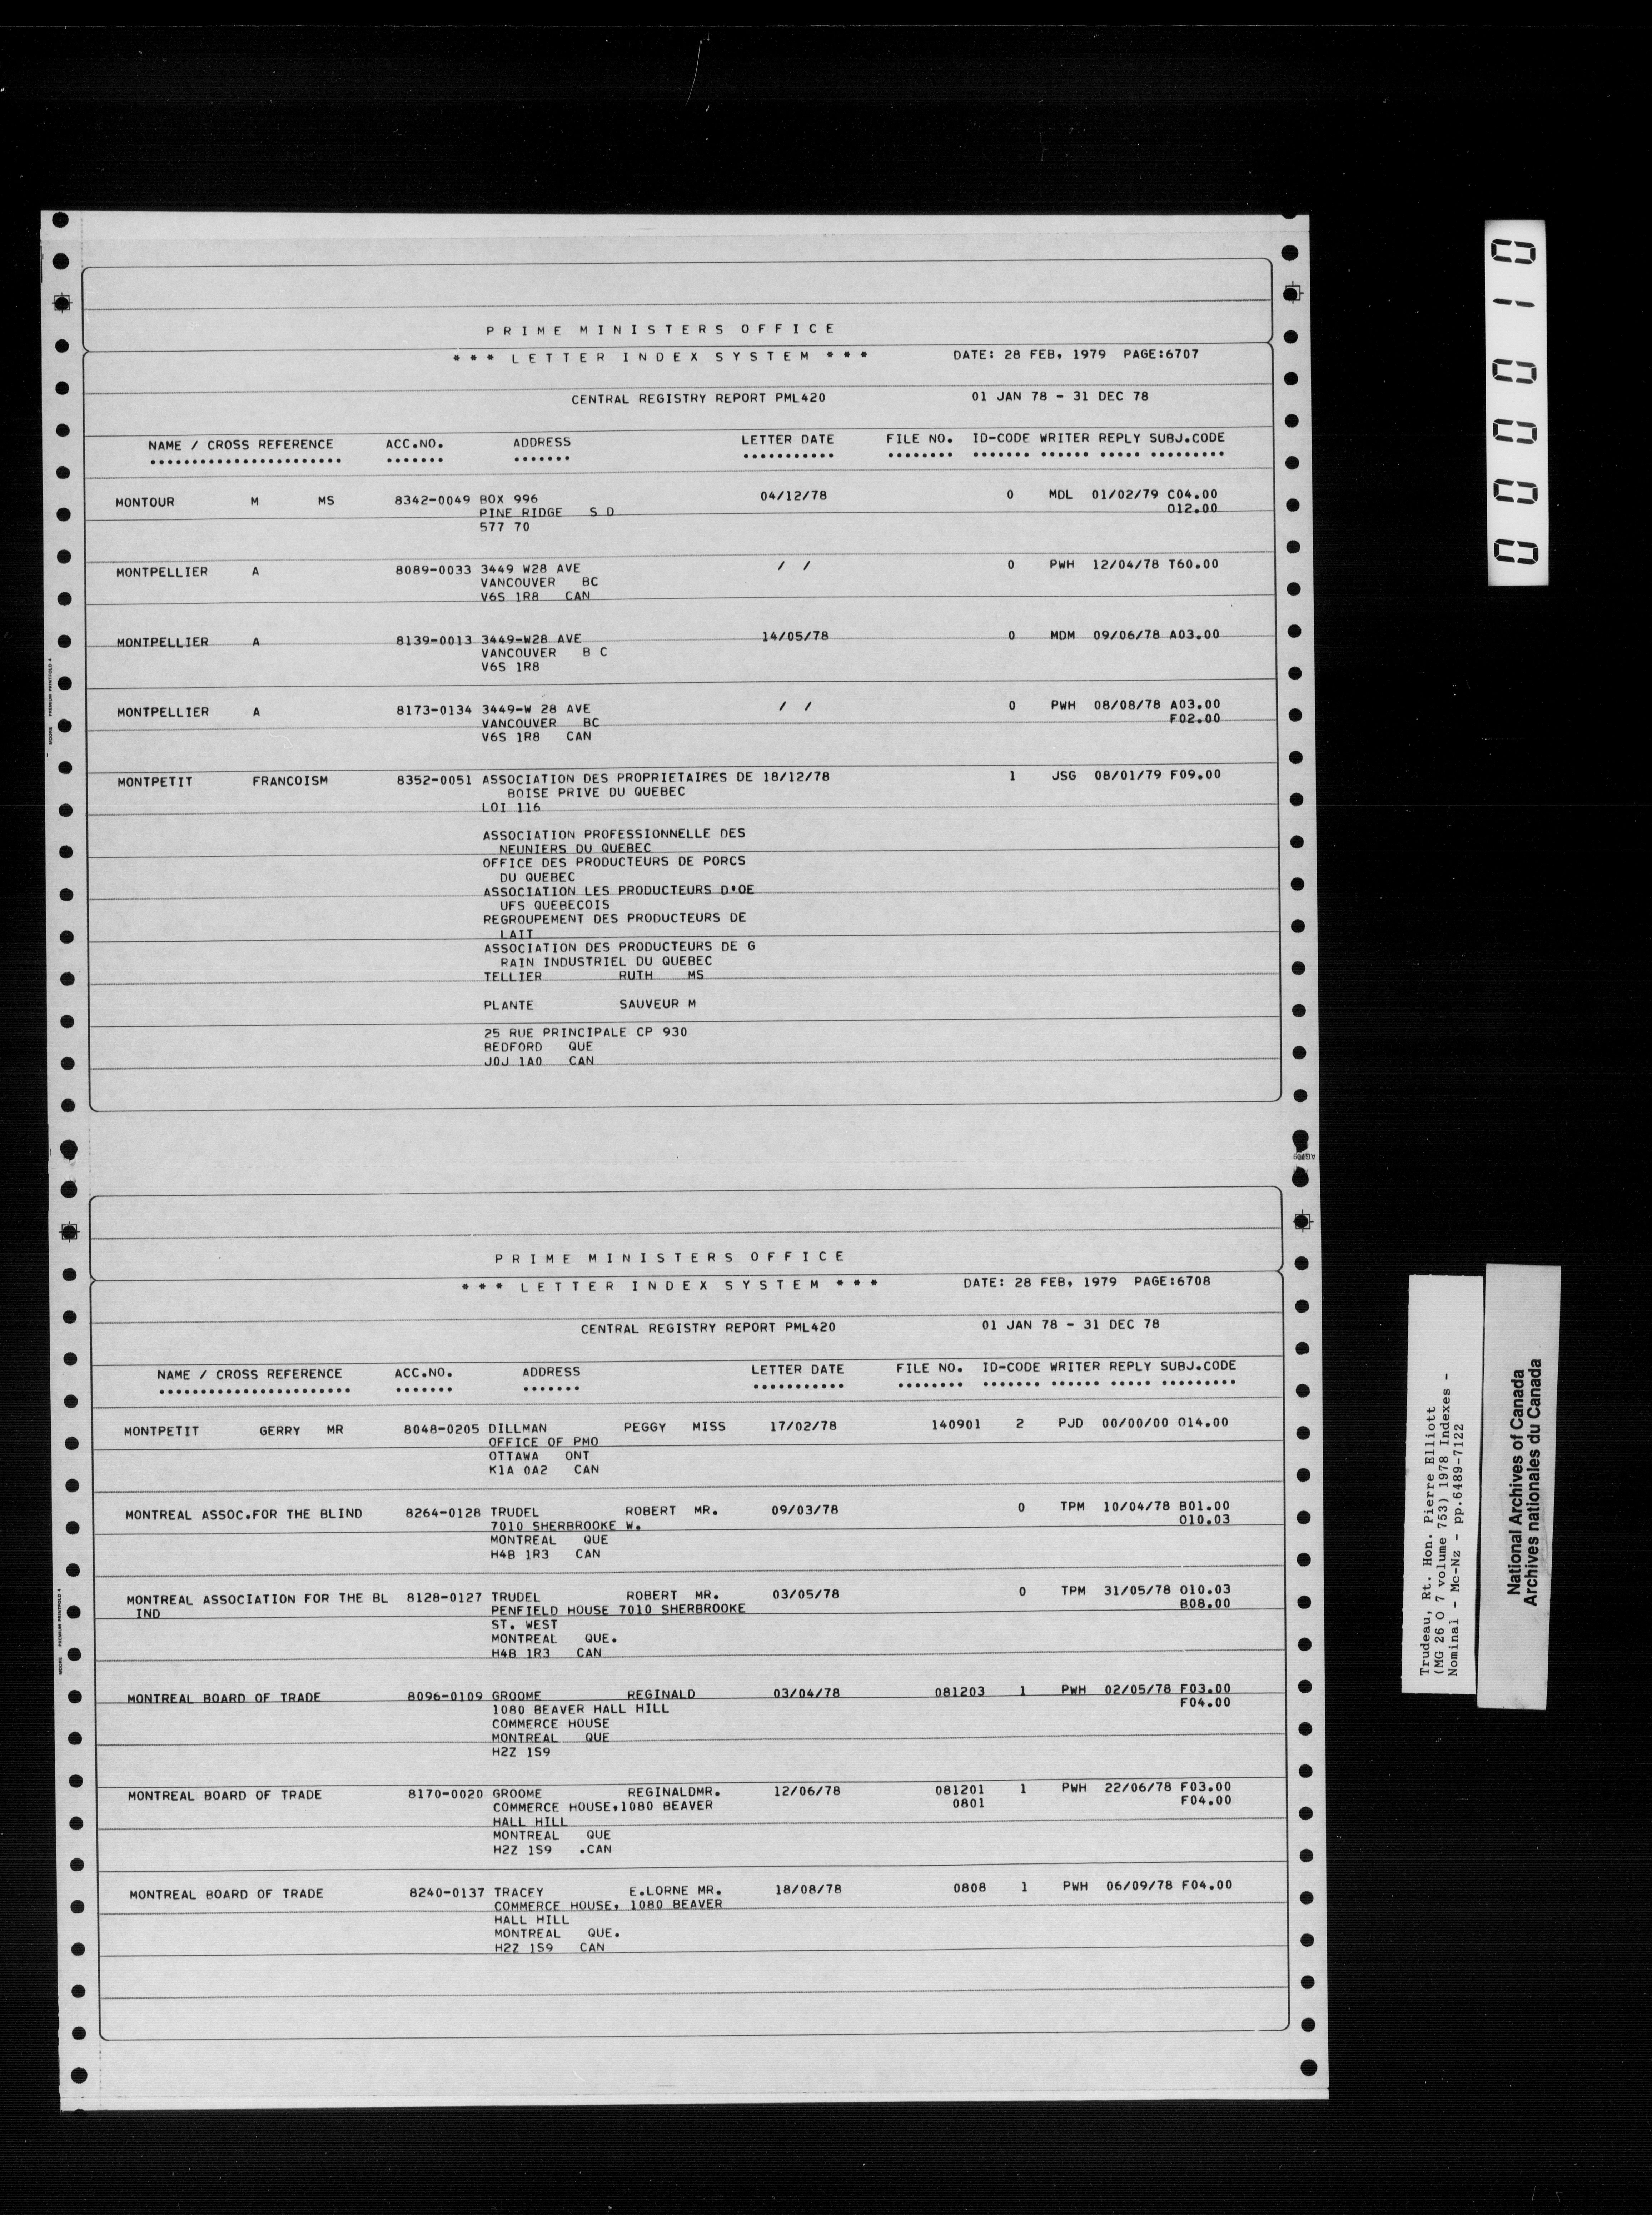 PRIME MINISTERS OFFICE
*** LETTER INDEX SYSTEM *** DATE: 28 FEB, 1979 PAGE:6707
CENTRAL REGISTRY REPORT PML420 01 JAN 78 - 31 DEC 78
NAME / CROSS REFERENCE ACC.NO. ADDRESS LETTER DATE FILE NO. ID-CODE WRITER REPLY SUBJ.CODE
MONTOUR M MS 8342-0049 BOX 996 04/12/78 0 MDL 01/02/79 C04.00
PINE RIDGE S D O12.00
577 70
MONTPELLIER A 8089-0033 3449 W28 AVE / / 0 PWH 12/04/78 T60.00
VANCOUVER BC
V6S 1R8 CAN
MONTPELLIER A 8139-0013 3449-W28 AVE 14/05/78 0 MDM 09/06/78 A03.00
VANCOUVER B C
V6S 1R8
MONTPELLIER A 8173-0134 3449-W 28 AVE / / 0 PWH 08/08/78 A03.00
VANCOUVER BC F02.00
V6S 1R8 CAN
MONTPETIT FRANCOISM 8352-0051 ASSOCIATION DES PROPRIETAIRES DE 18/12/78 1 JSG 08/01/79 F09.00
BOISE PRIVE DU QUEBEC
LOI 116
ASSOCIATION PROFESSIONNELLE DES
NEUNIERS DU QUEBEC
OFFICE DES PRODUCTEURS DE PORCS
DU QUEBEC
ASSOCIATION LES PRODUCTEURS D'OE
UFS QUEBECOIS
REGROUPEMENT DES PRODUCTEURS DE
LAIT
ASSOCIATION DES PRODUCTEURS DE G
RAIN INDUSTRIEL DU QUEBEC
TELLIER RUTH MS
PLANTE SAUVEUR M
25 RUE PRINCIPALE CP 930
BEDFORD QUE
J0J 1A0 CAN
MOORE PREMIUM PRINTFOLD 4
PRIME MINISTERS OFFICE
*** LETTER INDEX SYSTEM *** DATE: 28 FEB, 1979 PAGE:6708
CENTRAL REGISTRY REPORT PML420 01 JAN 78 - 31 DEC 78
NAME / CROSS REFERENCE ACC.NO. ADDRESS LETTER DATE FILE NO. ID-CODE WRITER REPLY SUBJ.CODE
MONTPETIT GERRY MR 8048-0205 DILLMAN PEGGY MISS 17/02/78 140901 2 PJD 00/00/00 O14.00
OFFICE OF PMO
OTTAWA ONT
K1A 0A2 CAN
MONTREAL ASSOC.FOR THE BLIND 8264-0128 TRUDEL ROBERT MR. 09/03/78 0 TPM 10/04/78 B01.00
7010 SHERBROOKE W. O10.03
MONTREAL QUE
H4B 1R3 CAN
MONTREAL ASSOCIATION FOR THE BL 8128-0127 TRUDEL ROBERT MR. 03/05/78 0 TPM 31/05/78 O10.03
IND PENFIELD HOUSE 7010 SHERBROOKE B08.00
ST. WEST
MONTREAL QUE.
H4B 1R3 CAN
MONTREAL BOARD OF TRADE 8096-0109 GROOME REGINALD 03/04/78 081203 1 PWH 02/05/78 F03.00
1080 BEAVER HALL HILL F04.00
COMMERCE HOUSE
MONTREAL QUE
H2Z 1S9
MONTREAL BOARD OF TRADE 8170-0020 GROOME REGINALDMR. 12/06/78 081201 1 PWH 22/06/78 F03.00
COMMERCE HOUSE,1080 BEAVER 0801 F04.00
HALL HILL
MONTREAL QUE
H2Z 1S9 .CAN
MONTREAL BOARD OF TRADE 8240-0137 TRACEY E.LORNE MR. 18/08/78 0808 1 PWH 06/09/78 F04.00
COMMERCE HOUSE, 1080 BEAVER
HALL HILL
MONTREAL QUE.
H2Z 1S9 CAN
MOORE PREMIUM PRINTFOLD 4
000010
Trudeau, Rt. Hon. Pierre Elliott
(MG 26 O 7 volume 753) 1978 Indexes -
Nominal - Mc-Nz - pp.6489-7122
National Archives of Canada
Archives nationales du Canada